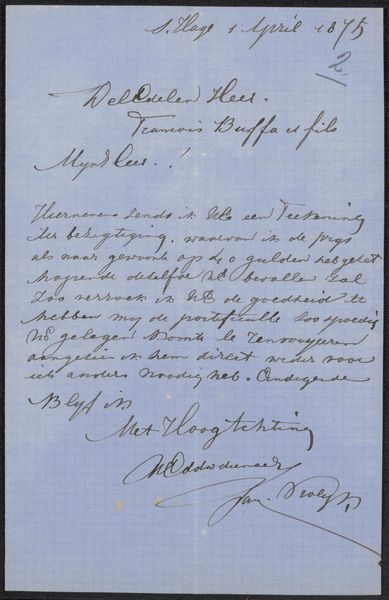 s. Hage 1 April 1875
2
DelEdelen Heer.
Francois Buffa et fils
Mynheer..!
Hiernevens zende ik UE een Teekening
ter bezigtiging. waarvan ik de prys
als naar gewoonte op 60 gulden heb gezet
hopende dat dezelfde UE bevallen zal
Zoo verzoek ik UE de goedheid te
hebben my de portefeuille zoo spoedig
UE gelegen komt te renvoyeeren
aangezien ik hem direct weder voor
iets anders noodig heb.
Blyf ik
Met Hoogachting
UEddwdienaar
Jan